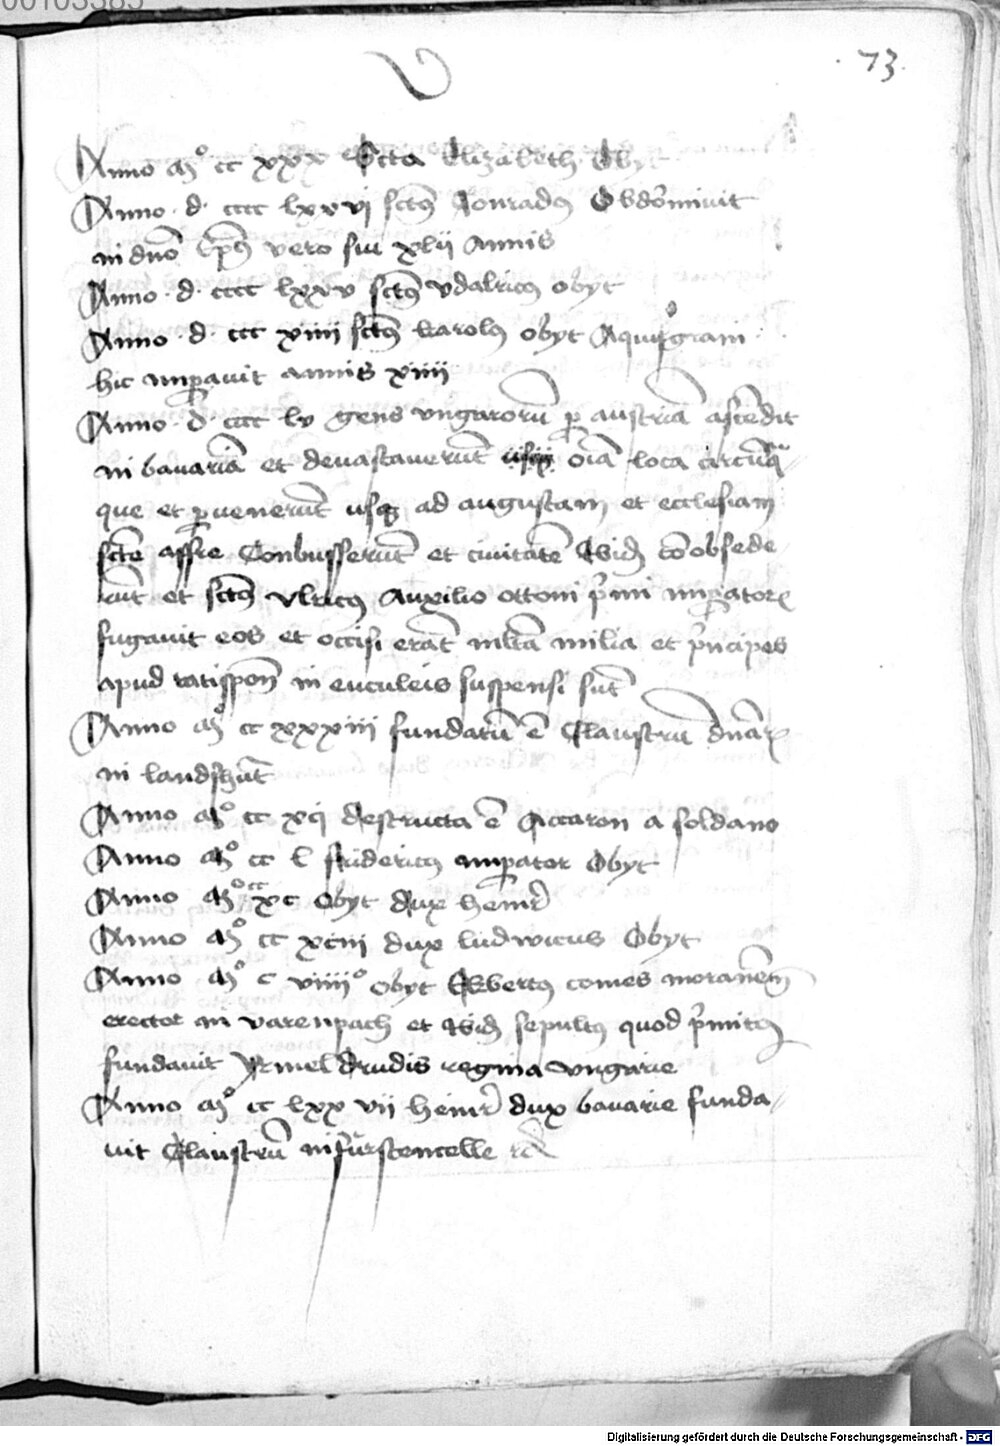 00103385
73
Anno Mͦ cc xxx Scta Elizabeth Obyt
Anno · d · cccc lxxvi sctus Conradus Obdormivit
in dno
vero sui xlii Annis
Anno · d · cccc lxxv sctus vdalricus obyt
Anno · d · ccc xiiii sctus karolus obyt Aquisgrani
hic imperavit annis xiiii
Anno · d · cccc lv gens vngarorū per austriā ascēdit
in bavariā et devastaverūt oīa loca circū
que et pervenerūt usque ad augustam et ecclesiam
scte affre Conbusserūt et civitatē obsede
rūt et sctus vlricus Auxilio ottoni primi imperatoris
fugavit eos et occisi erāt multa milia et principes
apud ratisponā in euculeis suspensi sūt
Anno Mͦ cc xxxiiii fundatū ē Claustrū dnarum
in landshūt
Anno Mͦ cc xci destructa ē Accaron a soldano
Anno Mͦ cc l fridericus imperator Obyt
Anno Mͦ cc xc Obyt dux heinr
Anno Mͦ cc xciiii dux ludwicus Obyt
Anno Mͦ c viiiiͦ obyt Ekbertus comes
erector in varenpach et ibidem sepultus quod primitus
fundavit regina vngarie
Anno Mͦ cc lxx vii heinr dux bavarie funda
vit Claustrū in fürstencelle
Digitalisierung gefördert durch die Deutsche Forschungsgemeinschaft - DFG